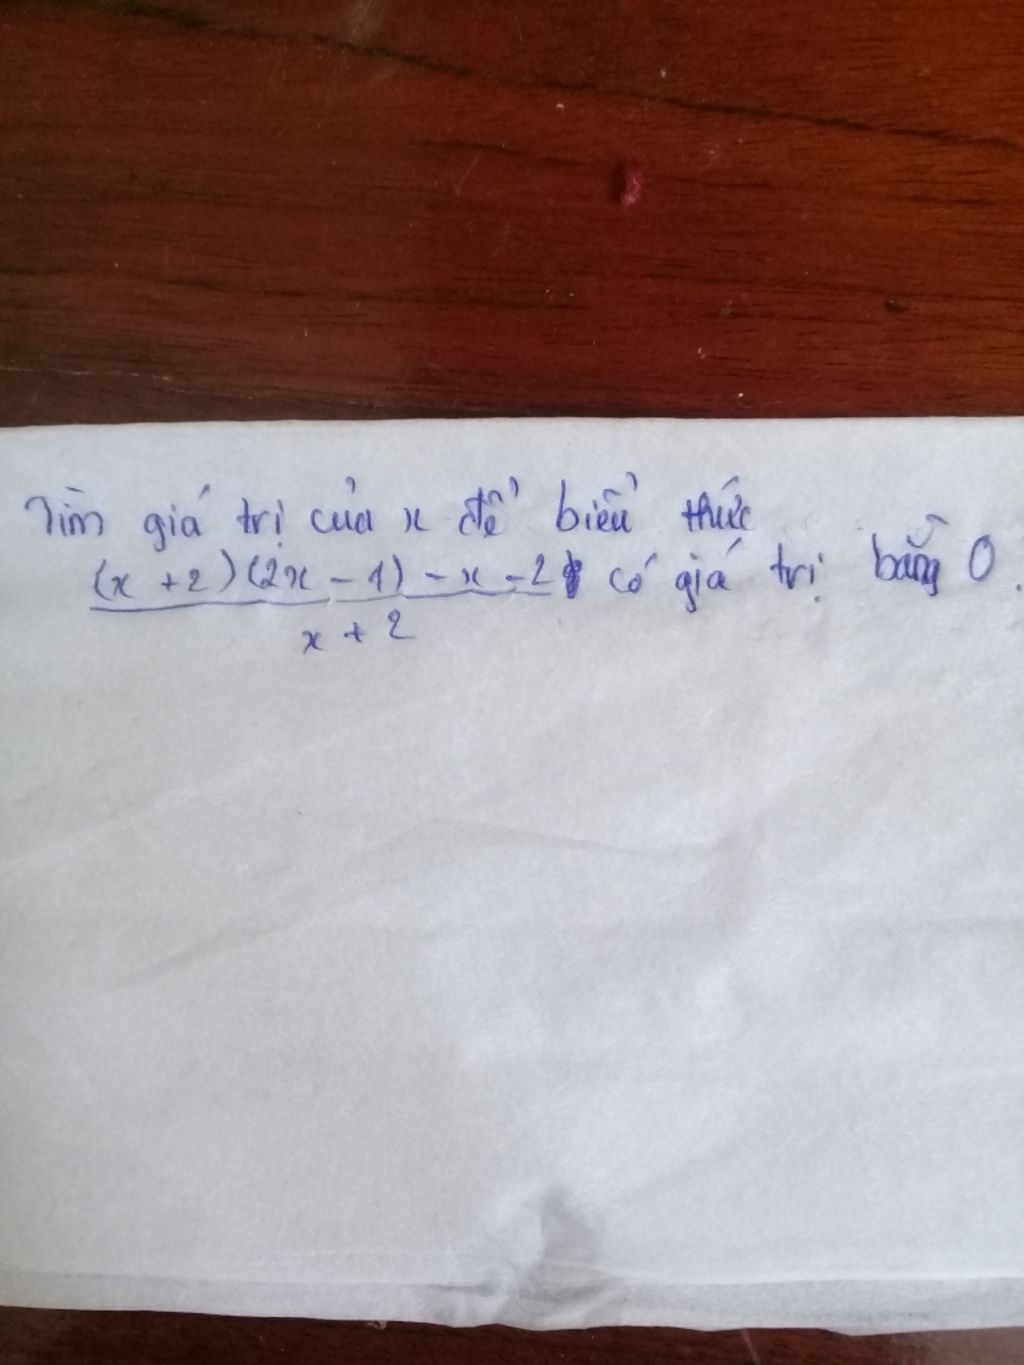 Tìm giá trị của x để biểu thức
(x + 2)(2x - 1) - x - 2 có giá trị bằng 0.
x + 2